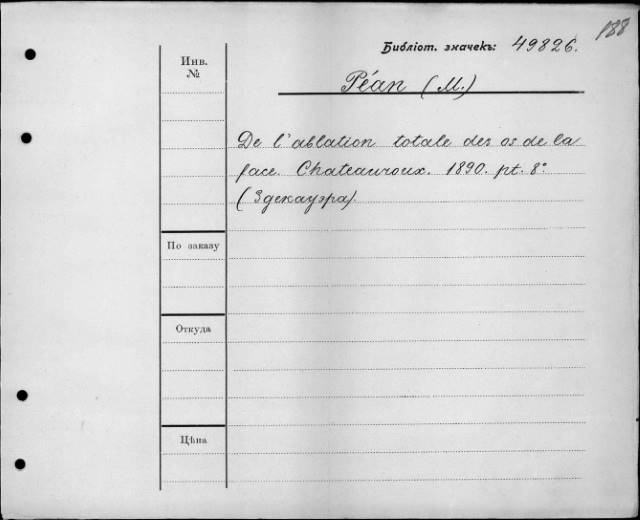 188
Библіот. значекъ: 49826.
Инв.
№
Péan (M.)
De l'ablation totale des os de la
face. Chateauroux. 1890. pt. 8°
(Здекауэра).
По заказу
Откуда
Цѣна